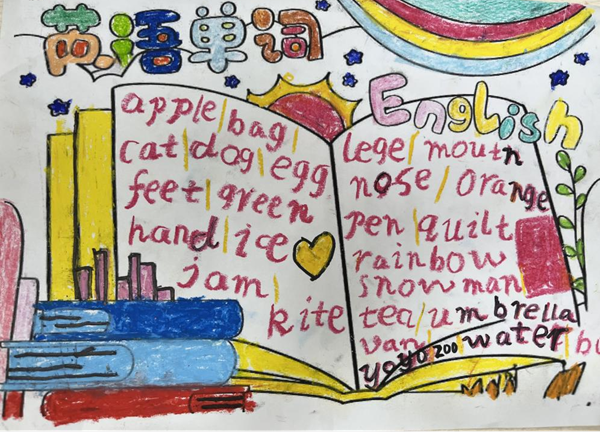 英语单词
English
apple/bag/
cat/dog/egg
feet/green
hand/ice
jam/
kite
lege/mouth
nose/orange
pen/quilt
rainbow
snowman/
tea/umbrella
van/water/bu
yoyo zoo